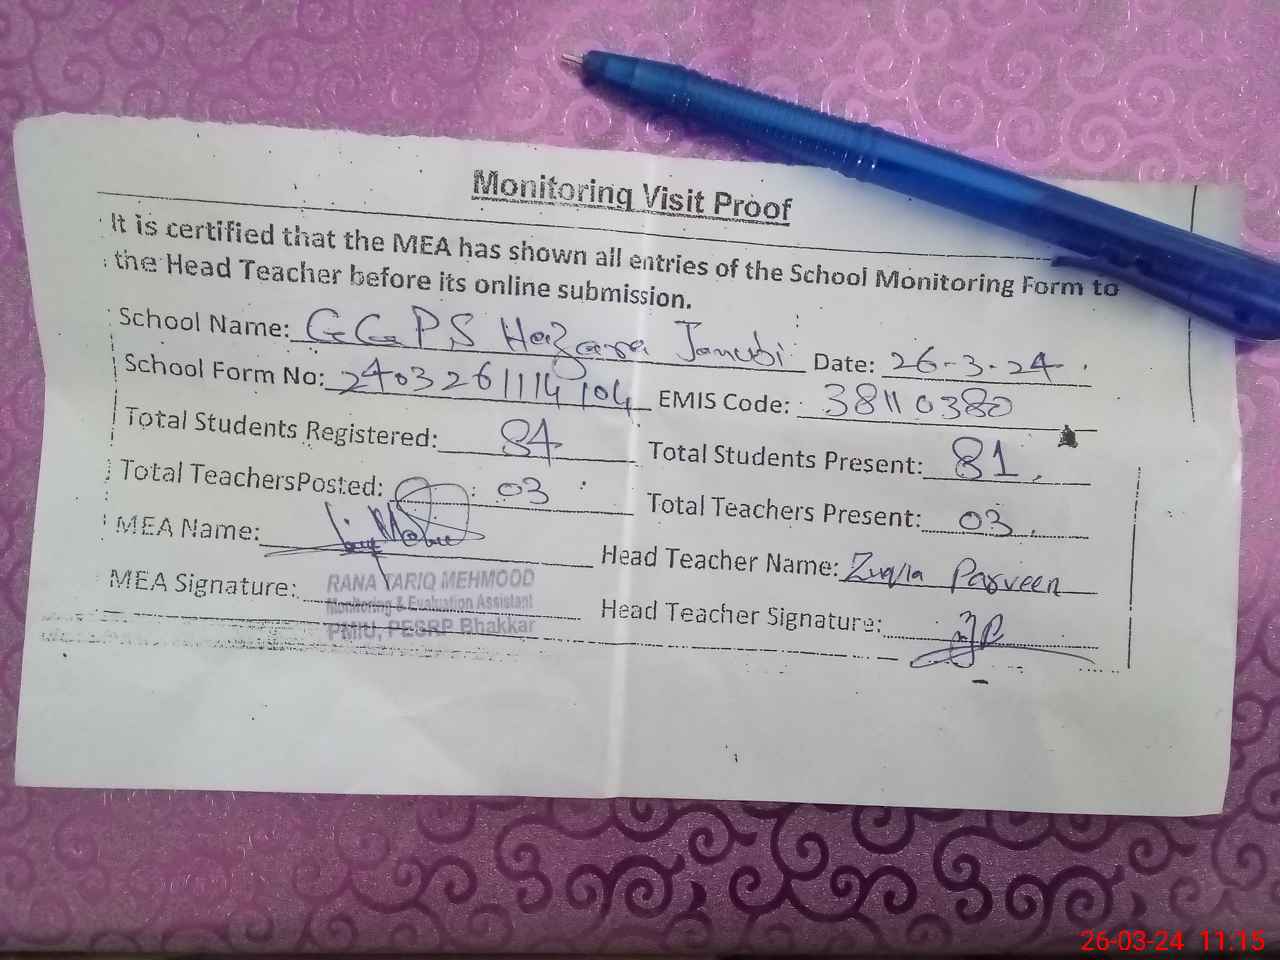 Monitoring Visit Proof
It is certified that the MEA has shown all entries of the School Monitoring Form to
the Head Teacher before its online submission.
School Name: GGPS Hazara Janubi Date: 26-3-24
School Form No: 2403261114104 EMIS Code: 38110380
Total Students Registered: 84 Total Students Present: 81
Total TeachersPosted: 03 Total Teachers Present: 03
MEA Name: Head Teacher Name: Parveen
MEA Signature: Head Teacher Signature:
RANA TARIQ MEHMOOD
Monitoring & Evaluation Assistant
PMIU, PESRP Bhakkar
26-03-24 11:15